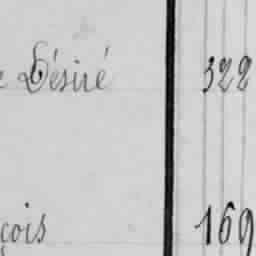 e Désiré 322
çois 169